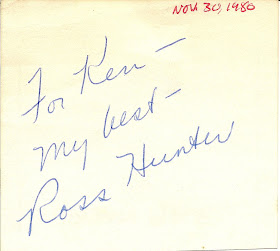 NOV 30, 1980
For Ken —
My best —
Ross Hunter